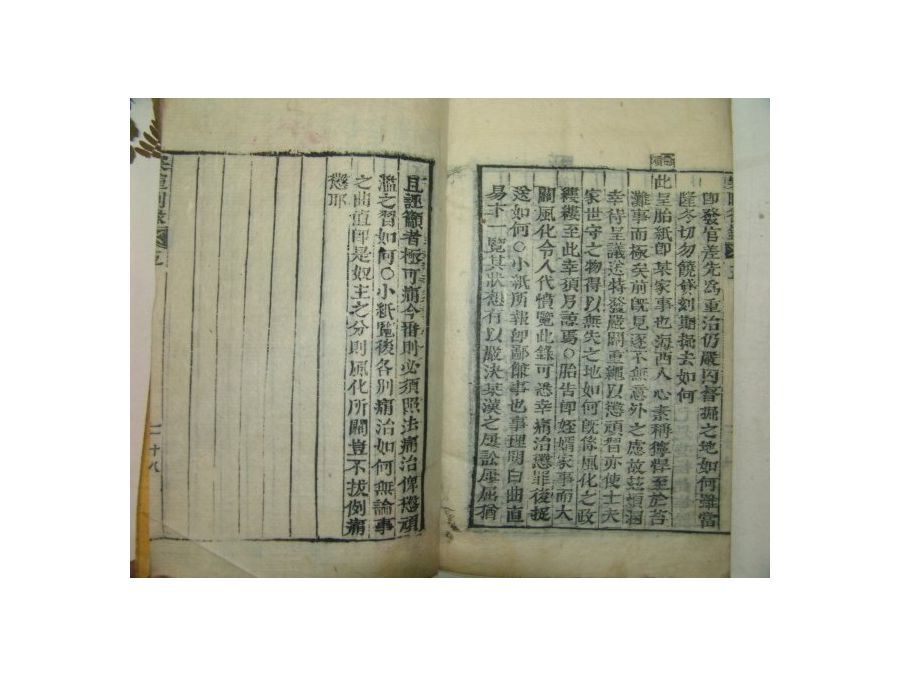 即發官差先爲重治仍嚴囚督捧之地如何雖當
隆冬切勿饒貸刻期擬去如何
此呈胎紙即某家事也海西人心素稱獰悍至於苔
灘事而極矣前旣見逐不無意外之慮故玆煩溷
幸待呈議送特發嚴關重繩以懲頑習亦使士夫
家世守之物得以無失之地如何旣係風化之政
縷縷至此幸須另諒焉○胎告即姪壻家事而大
關風化令人代憤覽此錄可悉幸痛治懲罪後捉
送如何○小紙所報即鄙餘事也事理明白曲直
易卞一覽其狀想有以嚴決某漢之屢訟屢屈猶
且誣籲者極可痛今番則必須照法痛治俾懲頑
濫之習如何○小紙覽後各別痛治如何無論事
之曲直即是奴主之分則風化所關豈不拔例痛
懲耶
二十八